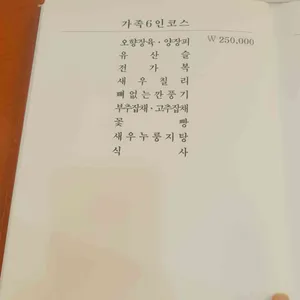 가족6인코스
오향장육·양장피 ₩ 250,000
유산슬
전가복
새우칠리
뼈없는깐풍기
부추잡채·고추잡채
꽃빵
새우누룽지탕
식사